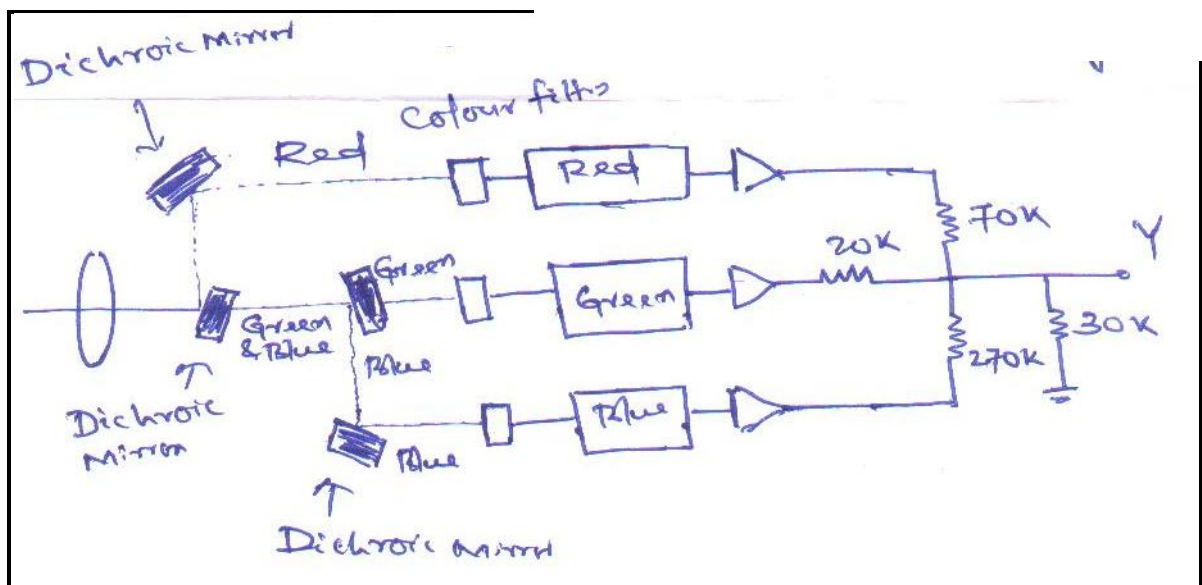 Dichroic Mirror
Red
Colour filts
Red
70K
20K
Y
Green
Green
Green
& Blue
Blue
270K
30K
Dichroic
Mirror
Blue
Blue
Dichroic Mirror